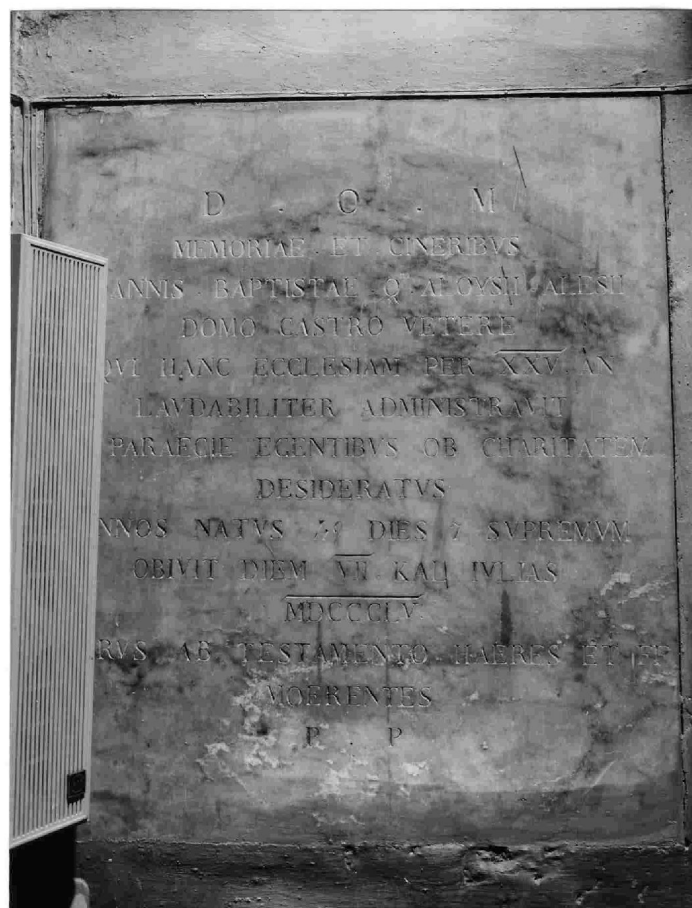 D . O . M
MEMORIAE ET CINERIBVS
ANNIS BAPTISTAE Q ALOYSII ALESII
DOMO CASTRO VETERE
QVI HANC ECCLESIAM PER XXV AN
LAVDABILITER ADMINISTRAVIT
PARAECIE EGENTIBVS OB CHARITATEM
DESIDERATVS
NNOS NATVS DIES 7 SVPREMVM
OBIVIT DIEM VII KAL IVLIAS
MDCCCLV.
RVS AB TESTAMENTO HAERES ET FF
MOERENTES
P . P